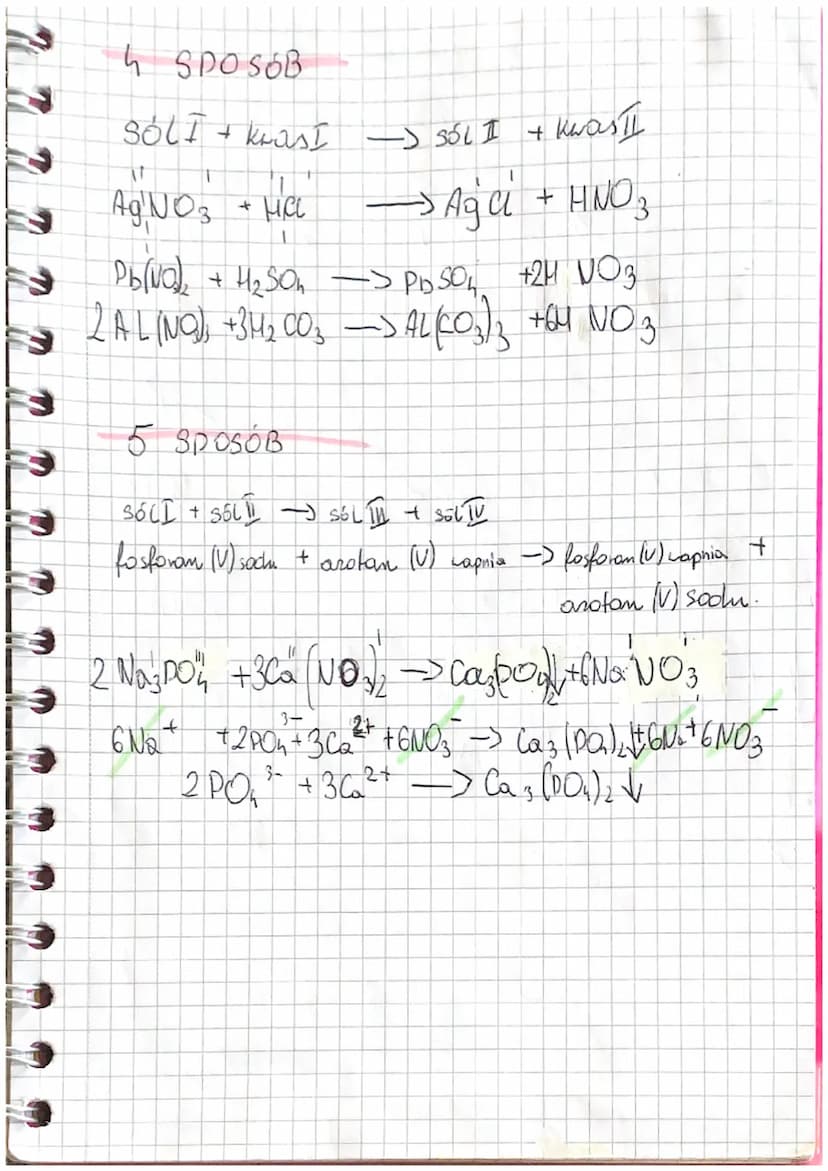 4 SPOSÓB
SÓL I + kwas I → SÓL II + kwas II
AgNO₃ + HCl → AgCl + HNO₃
Pb(NO₃)₂ + H₂SO₄ → PbSO₄ +2HNO₃
2AL(NO₃)₃ +3H₂CO₃ → AL(CO₃)₃ +6HNO₃
5 SPOSÓB
SÓL I + SÓL II → SÓL III + SÓL IV
fosforan (V) sodu + azotan (V) wapnia → fosforan (V) wapnia +
azotan (V) sodu.
2Na₃PO₄ +3Ca(NO₃)₂ → Ca₃(PO₄)₂↓ +6NaNO₃
6Na⁺ +2PO₄³⁻ +3Ca²⁺ +6NO₃⁻ → Ca₃(PO₄)₂↓ +6Na⁺ 6NO₃⁻
2PO₄³⁻ +3Ca²⁺ → Ca₃(PO₄)₂↓